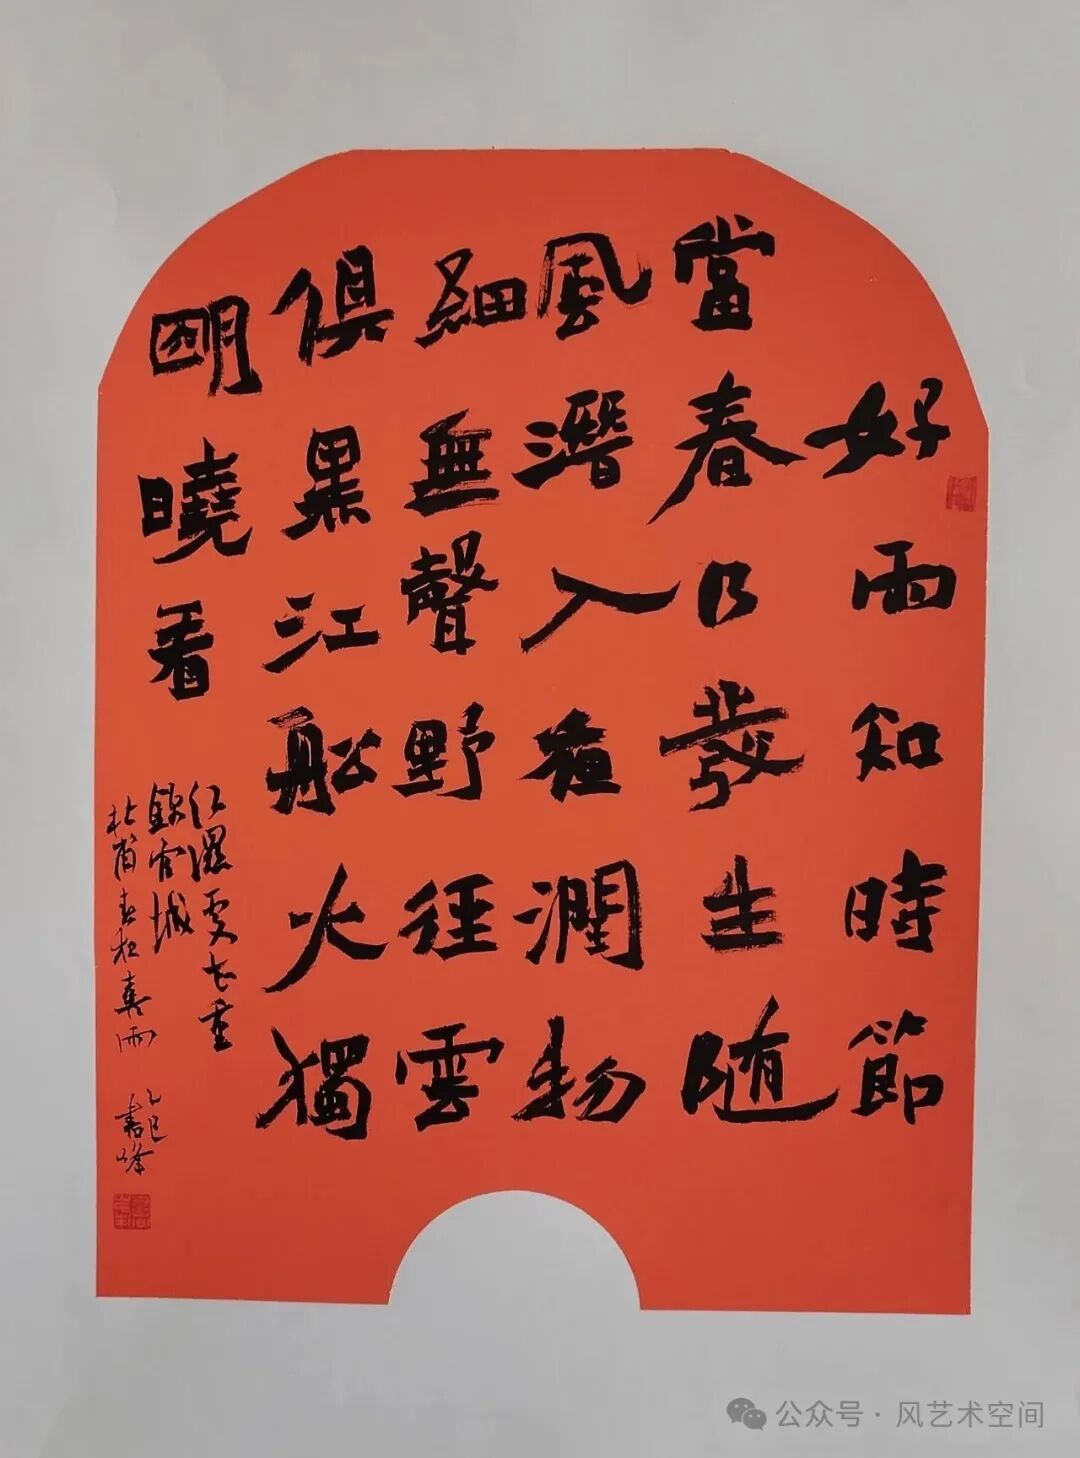 好雨知時節
當春乃發生随
風潛入夜潤物
細無聲野徑雲
俱黑江舩火獨
朙曉看
红濕處花重
錦官城
杜甫春夜喜雨
乙巳
書峰
公众号·风艺术空间